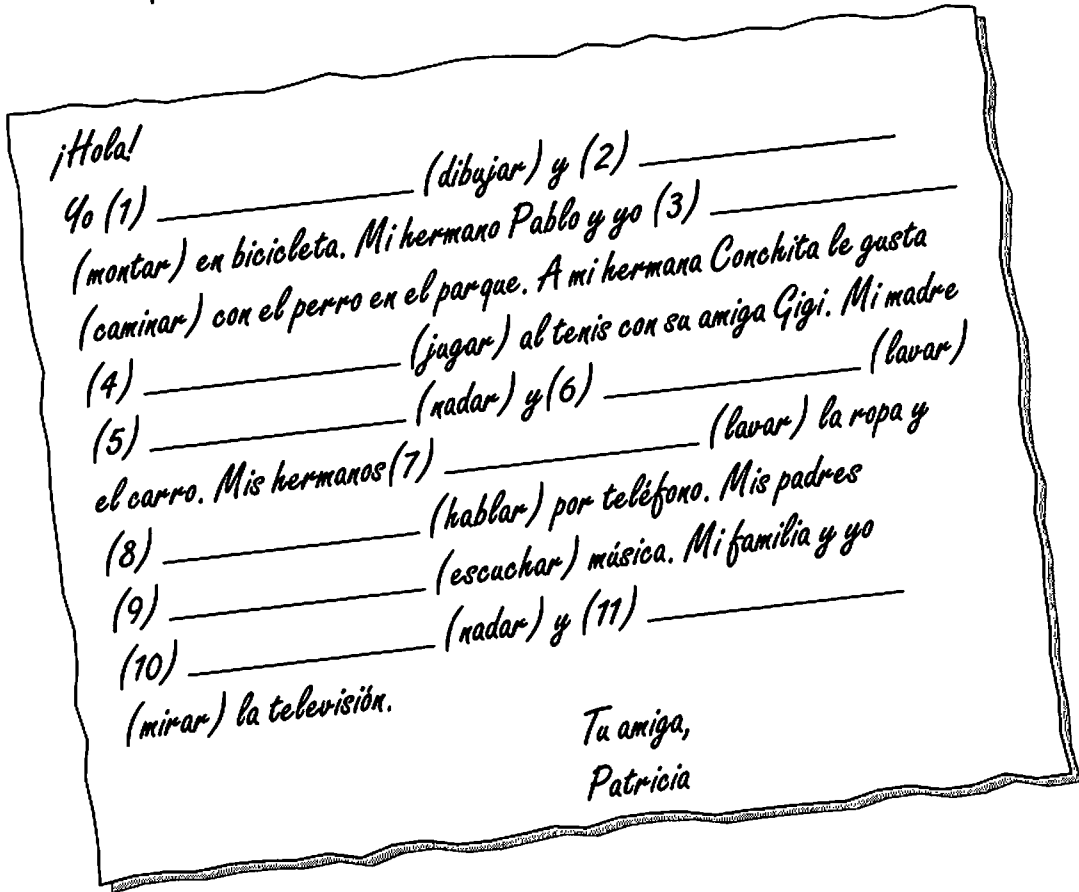 ¡Hola!
Yo (1) ____________ (dibujar) y (2) ____________
(montar) en bicicleta. Mi hermano Pablo y yo (3) ____________
(caminar) con el perro en el parque. A mi hermana Conchita le gusta
(4) ____________ (jugar) al tenis con su amiga Gigi. Mi madre
(5) ____________ (nadar) y (6) ____________ (lavar)
el carro. Mis hermanos (7) ____________ (lavar) la ropa y
(8) ____________ (hablar) por teléfono. Mis padres
(9) ____________ (escuchar) música. Mi familia y yo
(10) ____________ (nadar) y (11) ____________
(mirar) la televisión.
Tu amiga,
Patricia